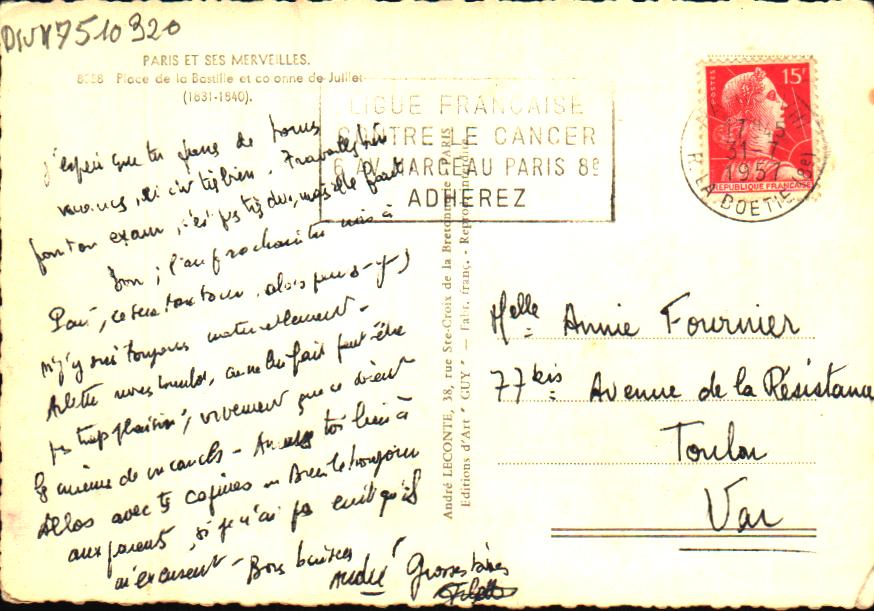 DIV 7510920
PARIS ET SES MERVEILLES.
8358 Place de la Bastille et colonne de Juillet
(1831-1840).
LIGUE FRANÇAISE
CONTRE LE CANCER
6 AV. MARCEAU PARIS 8e
ADHEREZ
POSTES
15F
17 45
31-7
1957
R. LA BOETIE (8e)
REPUBLIQUE FRANÇAISE
J'espère que tu passes de bonnes
vacances, ici c'est très bien. Travailles bien
pour ton examen, c'est pas très dur, mais elle faut
Bon, l'an prochain
Paris, ce sera ton tour, alors penses-y
m'y suis toujours naturellement -
Arlette nous tombe, ça ne lui fait peut-être
pas trop plaisir, vivement que ce vient
la semaine de vacances - Amuse toi bien à
Allos avec tes copines
aux parents, si je n'ai pas écrit qu'ils
m'excusent - Bons baisers
André Grosses bises
Arlette
André LECONTE, 38, rue Ste-Croix de la Bretonnerie, PARIS
Editions d'Art "GUY" - Fabr. franç. - Reproduction
Melle Annie Fournier
77 bis Avenue de la Résistance
Toulon
Var